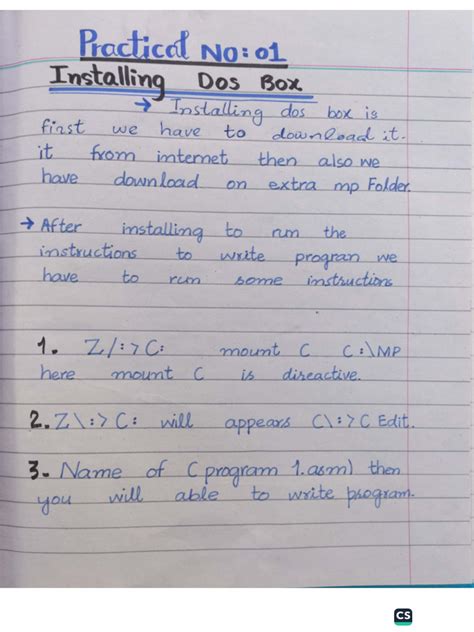 Practical No: 01
Installing Dos Box
→ Installing dos box is
first we have to download it.
it from internet then also we
have download on extra mp Folder.
→ After installing to run the
instructions to write progran we
have to run some instructions
1. Z/:> C: mount C C:\MP
here mount C is direactive.
2. Z\:> C: will appears C\:> C Edit.
3. Name of C program 1.asm) then
you will able to write program.
CS